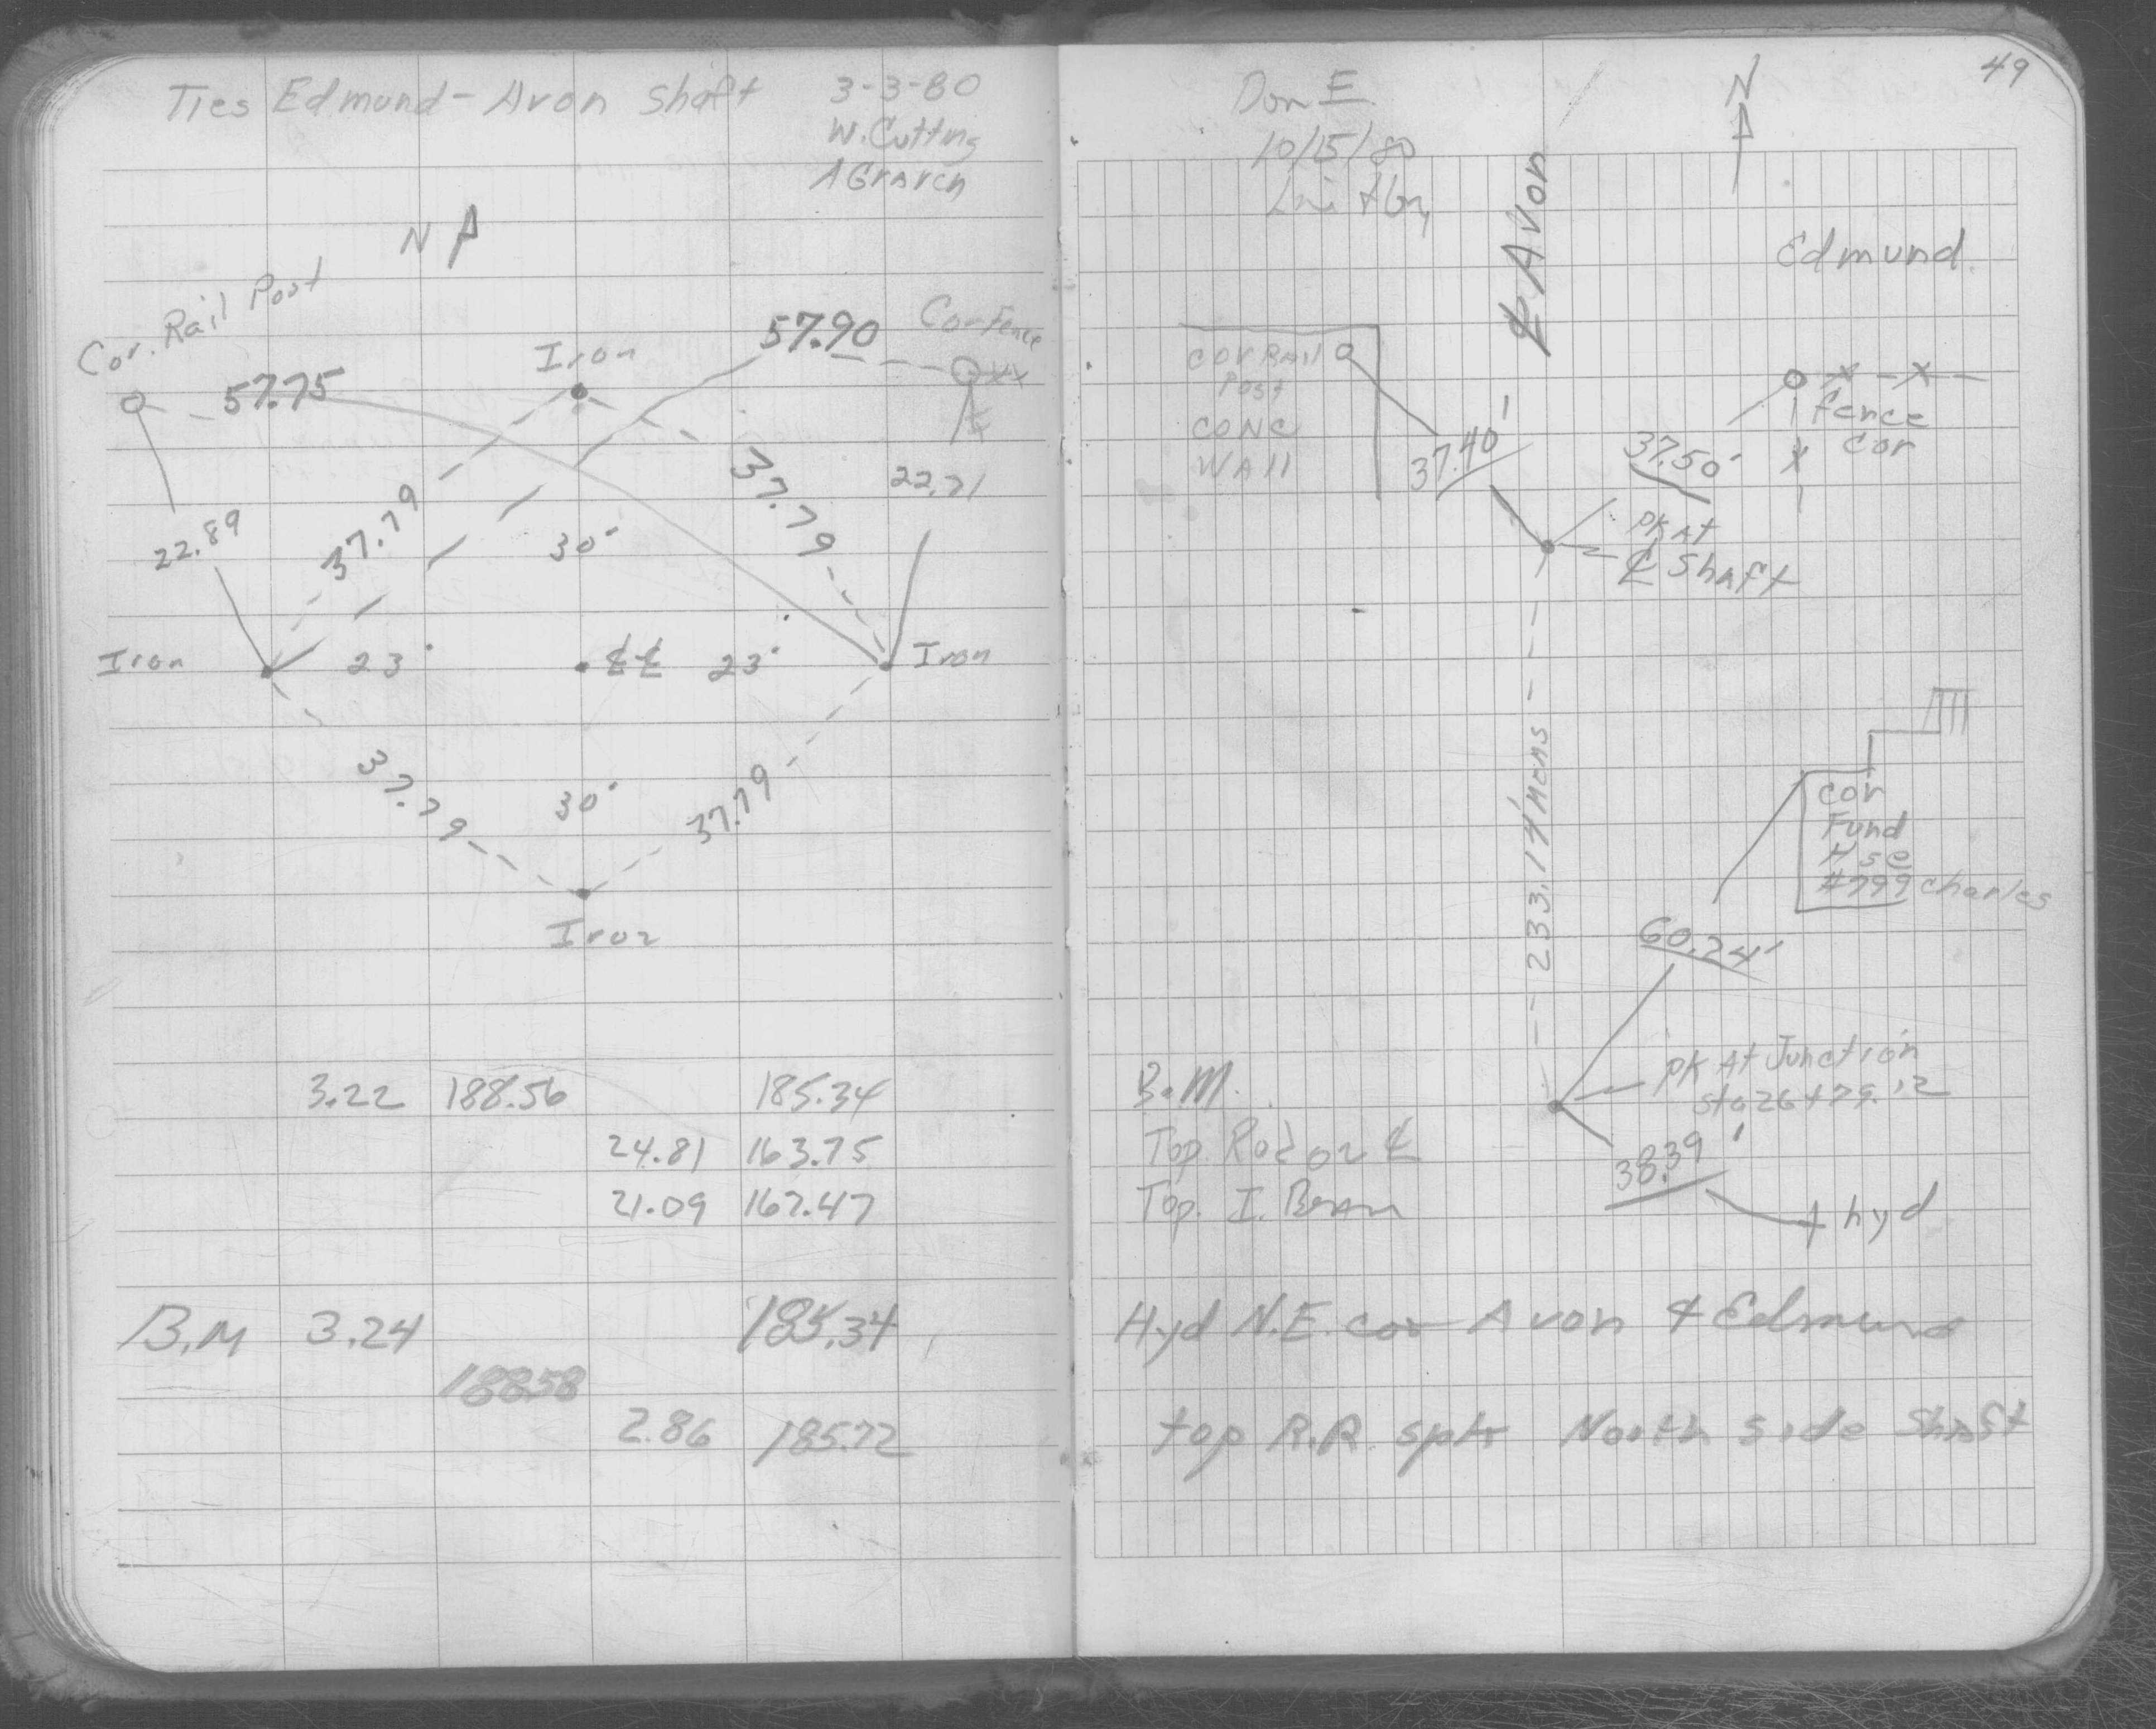 Ties Edmund - Avon Shaft
3-3-80
W. Cutting
N
Cor. Rail Post
57.75
Iron
57.90
Cor Fence
22.89
37.79
30'
37.79
22.71
Iron
23'
℄ ℄
23'
Iron
37.79
30'
37.79
Iron
3.22 188.56 185.34
24.81 163.75
21.09 167.47
B.M 3.24 185.34
188.58
2.86 185.72
49
Don E.
10/15/80
℄ Avon
N
Edmund
Cor Rail
Post
CONC
WAll
37.40'
37.50'
x - x -
fence
cor
x
PK At
℄ Shaft
233.14' Mons
cor
Fund
Hse
#799 Charles
60.24'
PK At Junction
Sta 26+79.12
38.39'
hyd
B.M.
Top Rod on ℄
Top. I. Beam
Hyd N.E. cor Avon & Edmund
top R.R. spk North side Shaft